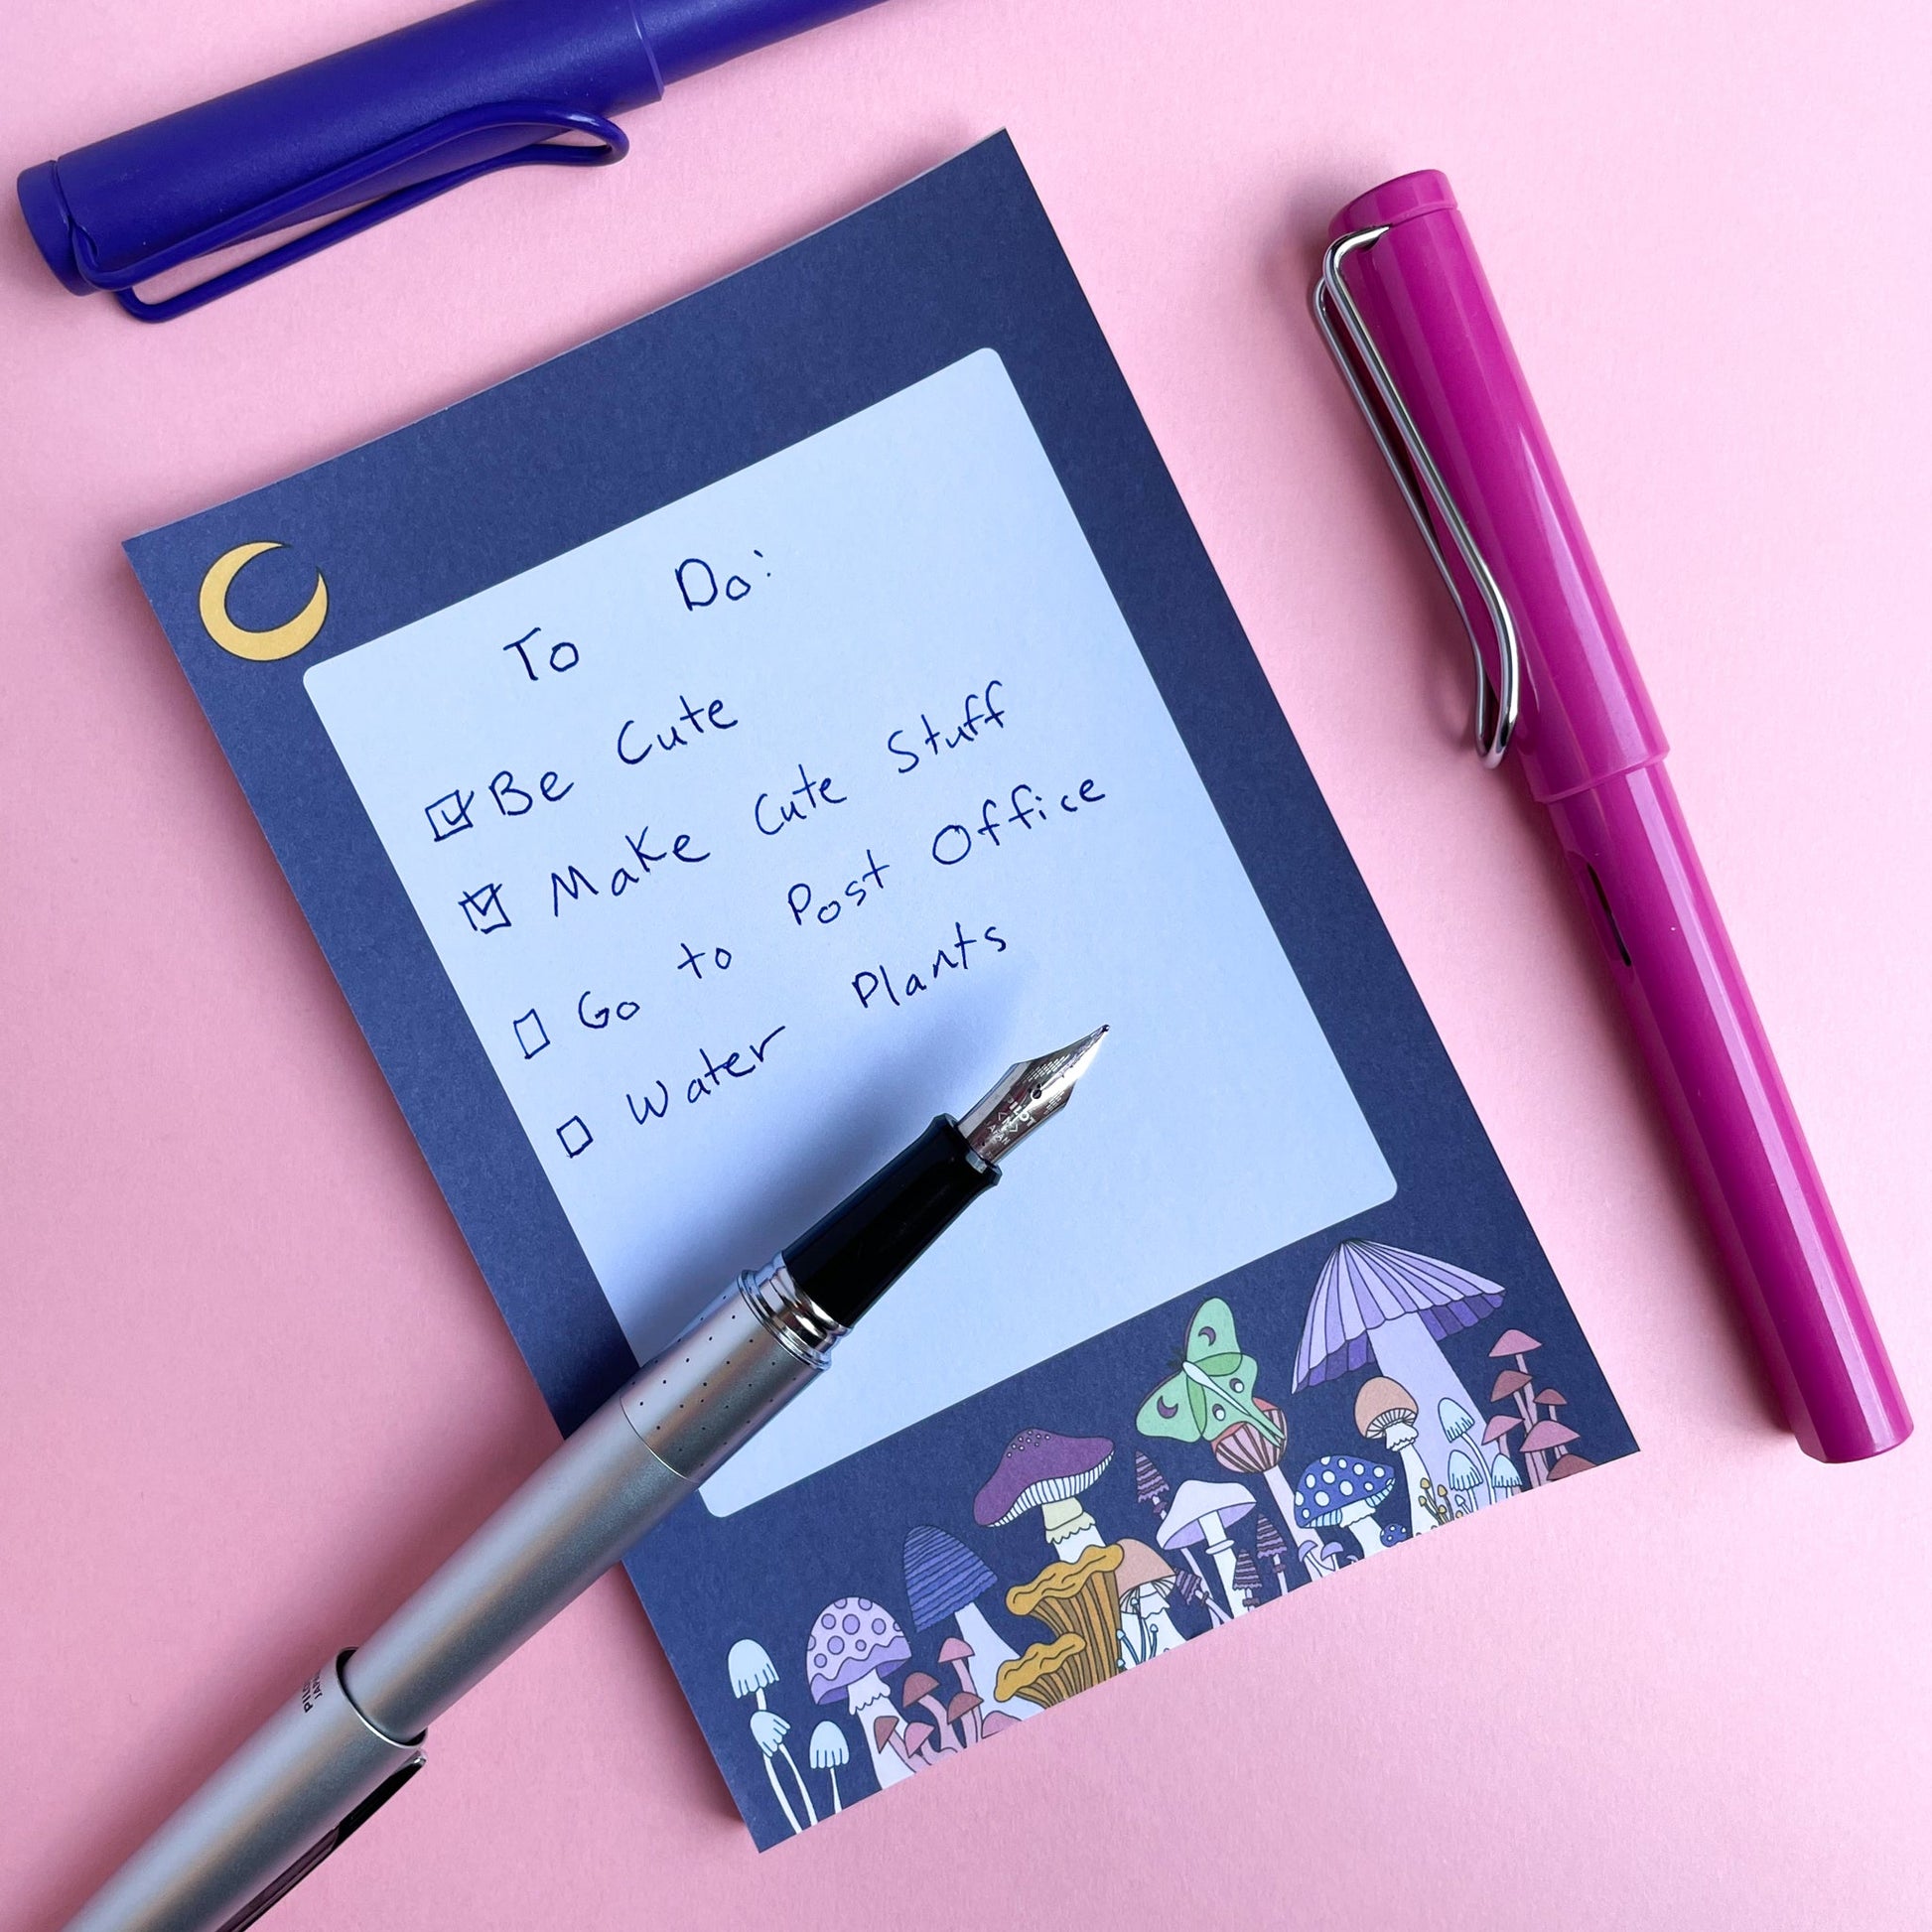 To Do:
☑ Be Cute
☑ Make Cute Stuff
☐ Go to Post Office
☐ Water Plants
PILOT
JAPAN